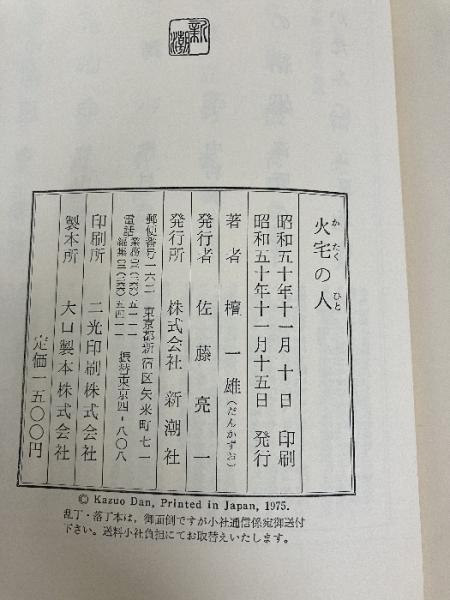 新潮
火宅の人
かたく
ひと
昭和五十年十一月十日 印刷
昭和五十年十一月十五日 発行
著者 檀一雄(だんかずお)
発行者 佐藤亮一
発行所 株式会社 新潮社
郵便番号一六二 東京都新宿区矢来町七一
振替東京四・八〇八
印刷所 二光印刷株式会社
製本所 大口製本株式会社
定価一五〇〇円
© Kazuo Dan, Printed in Japan, 1975.
乱丁・落丁本は、御面倒ですが小社通信係宛御送付
下さい。送料小社負担にてお取替えいたします。